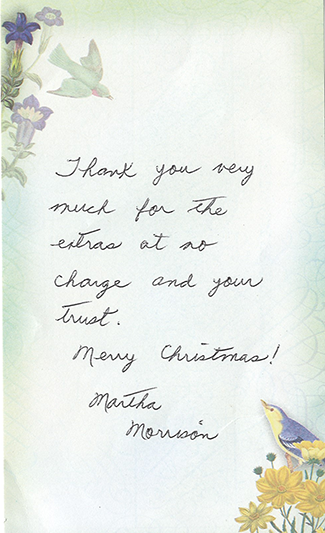 Thank you very
much for the
extras at no
charge and your
trust.
Merry Christmas!
Martha
Morrison